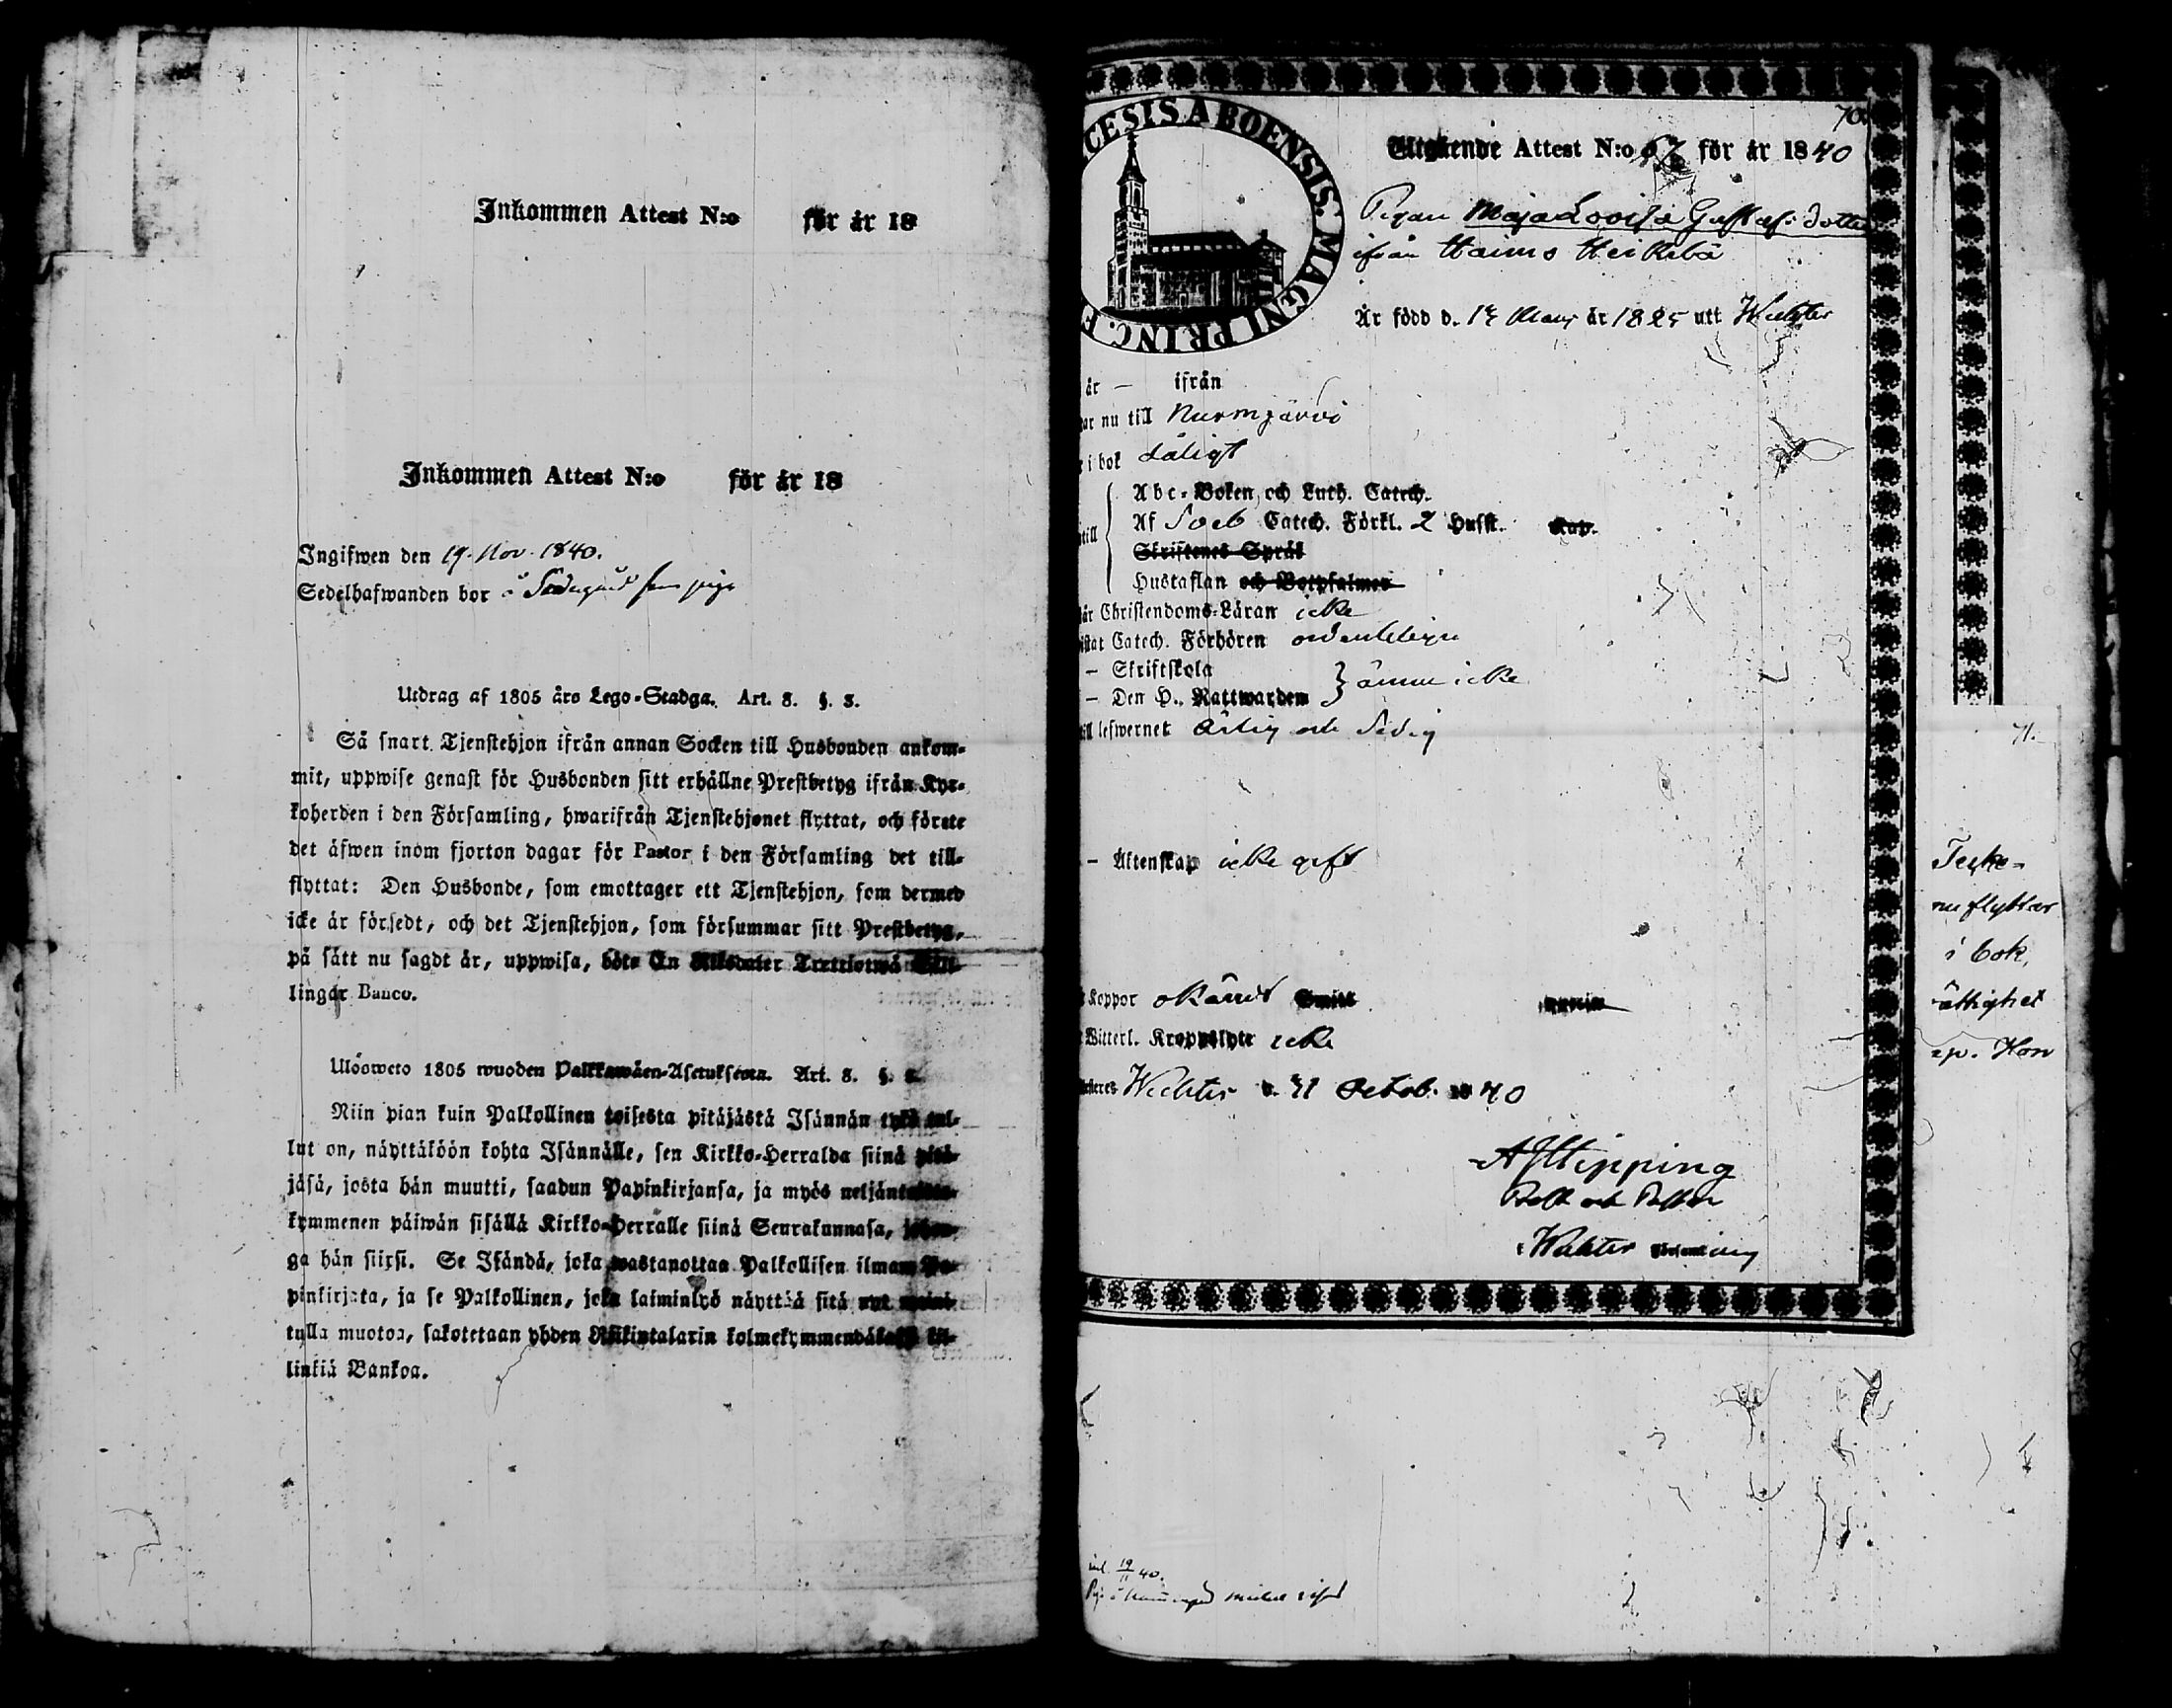 Inkommen Attest N:o för år 18
Inkommen Attest N:o för år 18
Ingifwen den 19. Nov. 1840.
Sedelhafwanden bor å
Utdrag af 1805 års Lego-Stadga. Art. 8. §. 3.
Så snart Tjenstehjon ifrån annan Socken till Husbonden ankom-
mit, uppwise genast för Husbonden sitt erhållne Prestbetyg ifrån Kyr-
koherden i den Församling, hwarifrån Tjenstehjonet flyttat, och förete
det äfwen inom fjorton dagar för Pastor i den Församling det till-
flyttat: Den Husbonde, som emottager ett Tjenstehjon, som dermed
icke är försedt, och det Tjenstehjon, som försummar sitt Prestbetyg,
på sätt nu sagdt är, uppwisa, böte En Riksdaler Trettiotwå Skil-
lingar Banco.
Ulösweto 1805 wuoden Palkkawäen-Asetuksesta. Art. 8. §.
Niin pian kuin Palkollinen toisesta pitäjästä Isännän tykö tul-
lut on, näyttäköön kohta Isännälle, sen Kirkko-Herralda siinä pitä-
jäsä, josta hän muutti, saadun Papinkirjansa, ja myös neljäntoista-
kymmenen päiwän sisällä Kirkko-Herralle siinä Seurakunnasa, johon-
ga hän siirsi. Se Isändä, joka wastanottaa Palkollisen ilman Pa-
pinkirjata, ja se Palkollinen, joka laiminlyö näyttää sitä nyt maini-
tulla muotoa, sakotetaan yhden Riikintalarin kolmekymmendäkaksi kil-
linkiä Bankoa.
70.
CESIS ABOENSIS. MAGNI PRINC. F
Utgående Attest N:o 67 för år 1840
Pigan Maja Lovisa Gustafs Dotter
ifrån Haimo Heikkilä
Är född d. Maij år 1825 utt Wichtis
år — ifrån
ar nu till Nurmijärvi
i bok dåligt
till
Abc-Boken och Luth. Catech.
Af Sveb Catech. Förkl. 2 Husst. Kap.
Skriftenes Språk
Hustaflan och Botpsalmer
år Christendoms-Läran icke
istat Catech. Förhören ordenteligen
— Skriftskola
— Den H. Nattwarden } ännu icke
ill lefwernet Ärlig och Sedig
— Äktenskap icke gift
Koppor okändt Smitt
Witterl. Kroppslyte icke
Wichtis d. 31 Octob. 1840
AJHipping
Prost och Pastor
i Wichtis Församling
inl. 19/11 40.
71.
nu flyttar
i bok,